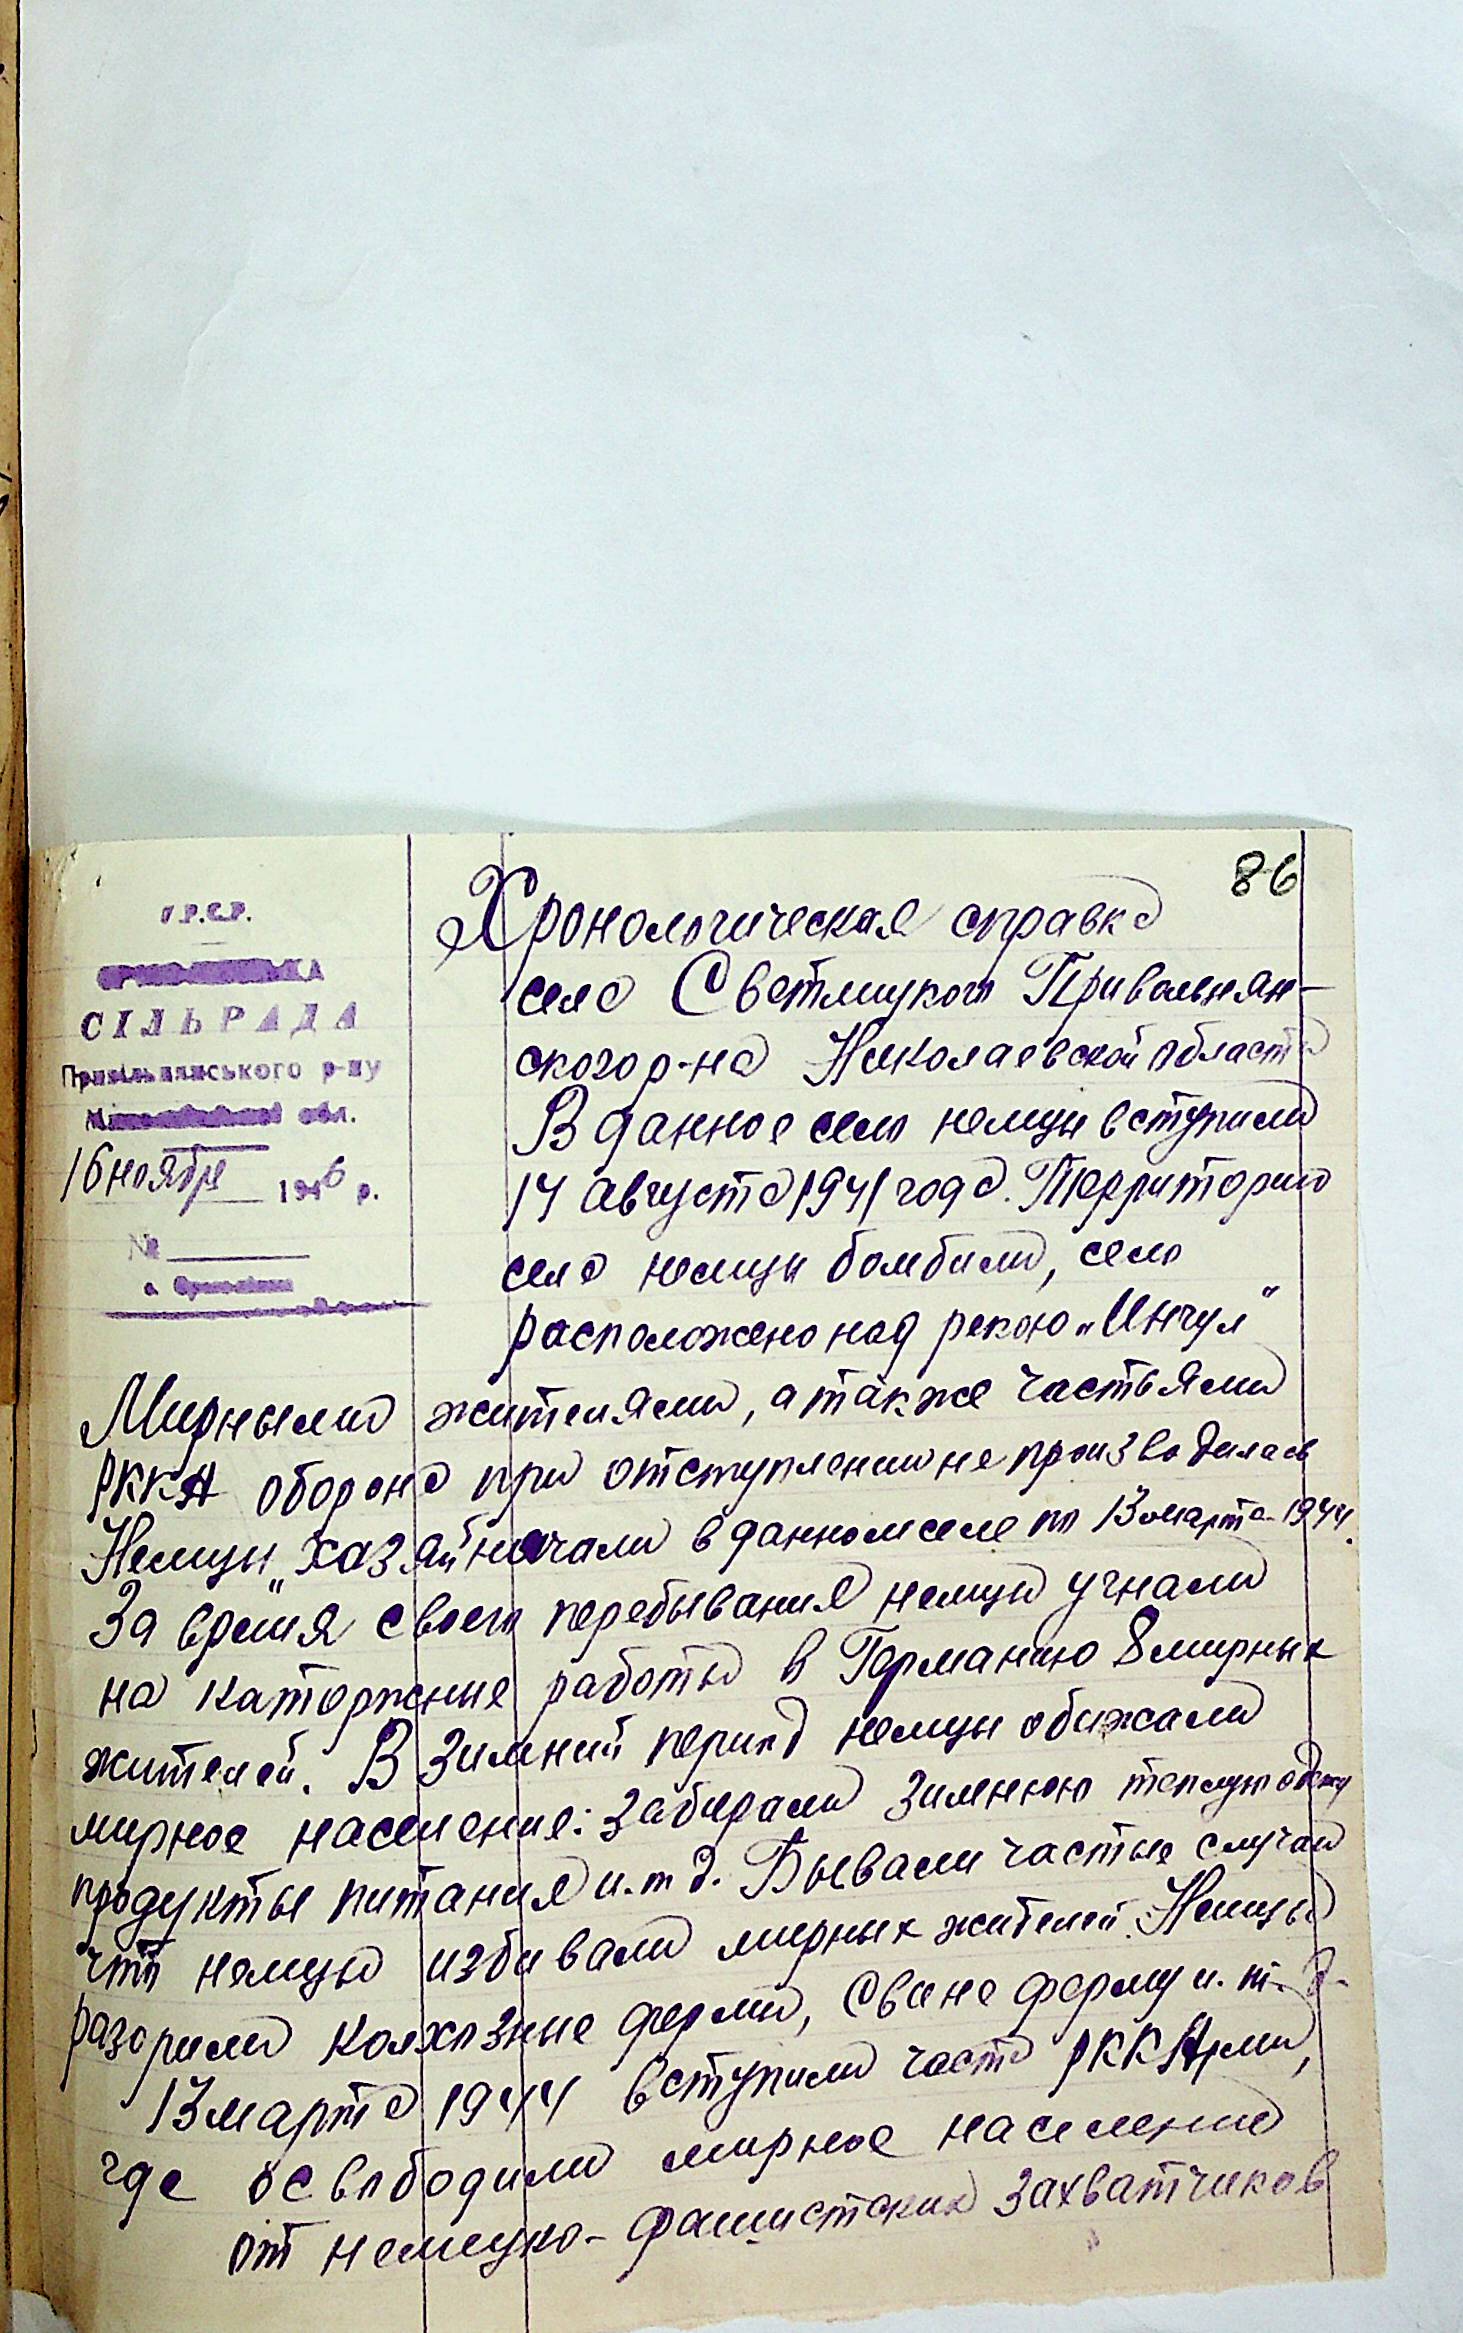 86
У.Р.С.Р.
СІЛЬРАДА
Привільнянського р-ну
обл.
16 ноября 1946 р.
№
с.
Хронологическая справка
села Светлицкого Привольнян-
ского р-на Николаевской области
В данное село немцы вступили
14 августа 1941 года. Территорию
села немцы бомбили, село
расположено над рекою „Ингул"
Мирными жителями, а также частьями
РККА оборона при отступлении не производилась
Немцы „хазяйначали в данном селе по 13 марта 1944.
За время своего перебывания немцы угнали
на каторжные работы в Германию 8 мирных
жителей. В зимний период немцы обижали
мирное население: забирали зимнюю теплую одежу
продукты питания и. т д. Бывали частые случаи
что немцы избивали мирных жителей. Немцы
разорили колхозные фермы, свине ферму и. т. д.
13 марта 1944 вступили части РККАрмии,
где освободили мирное население
от немецко-фашистских захватчиков